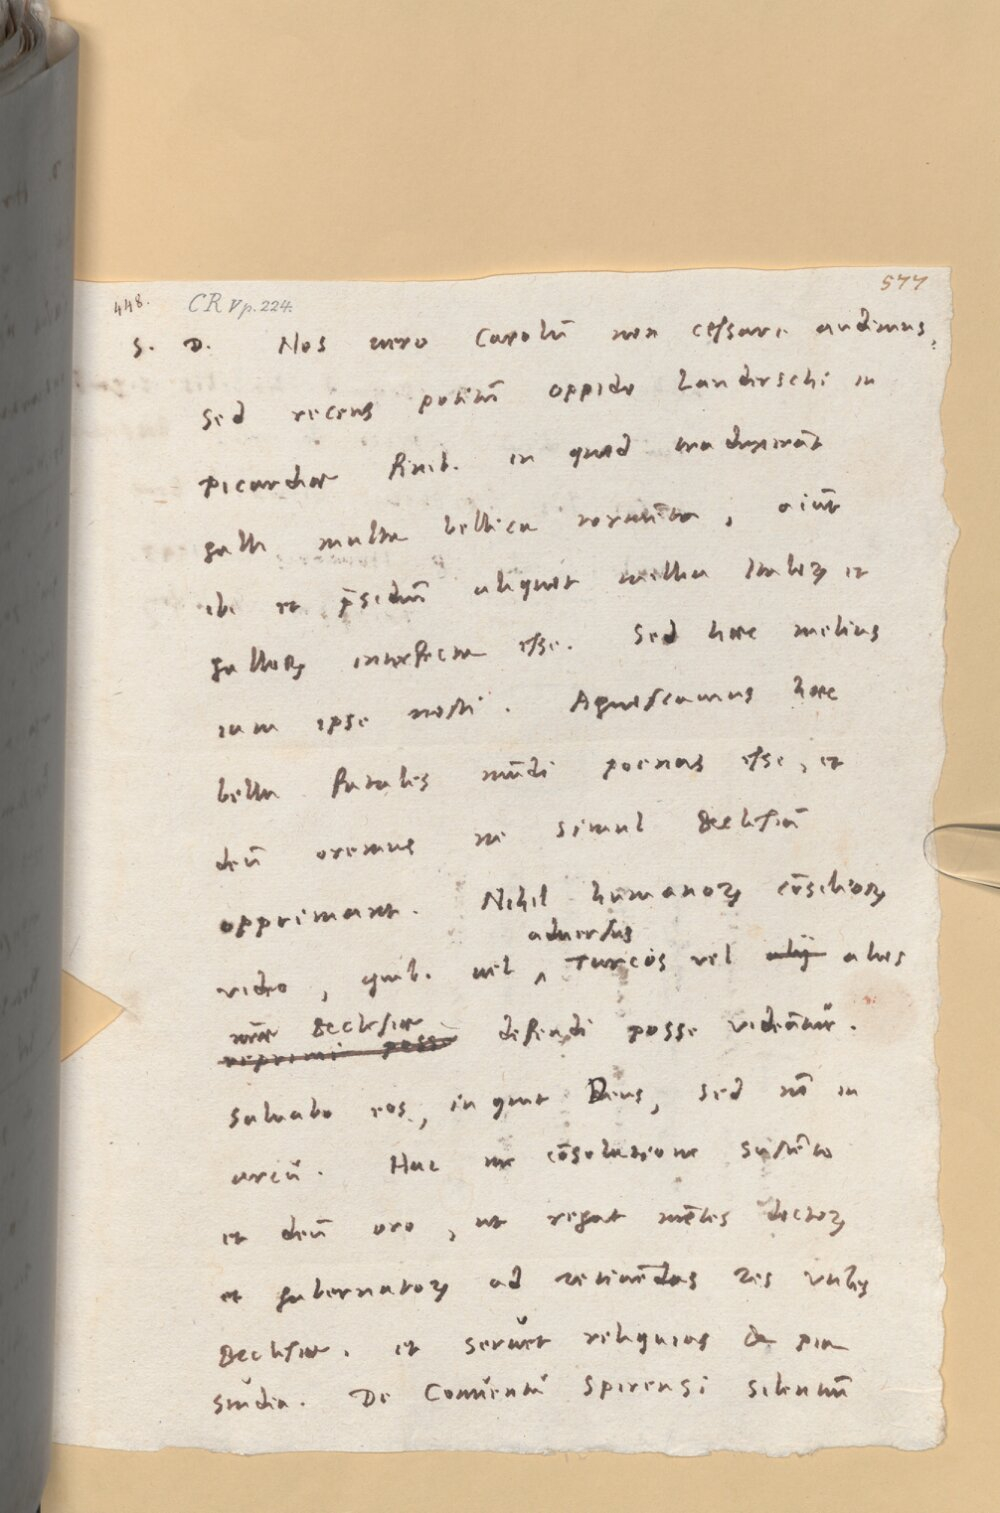 577
448. CR V p. 224.
S. D. Nos vero Carolū non cessare audimus,
sed recens potitū oppido Landerschi in
picardiae finib. in quod traduxerāt
galli multa bellica tormēta, aiūt
ibi et p̄sidiū aliquot millia Italoꝝ et
galloꝝ interfecta esse. Sed haec melius
iam ipse nosti. Agnoscamus haec
bella fatales mūdi poenas esse, et
deū oremus ne simul Ecclesiā
opprimant. Nihil humanoꝝ cōsilioꝝ
adversus
video, quib. vel ‸ Turcos vel alij alios
nr̄ae Ecclesiae
reprimi posse defendi posse videāt᷑.
Salvabo eos, inquit Deus, sed nō in
arcu. Hac me cōsolatione sustēto
et deū oro, ut regat mētes doctoꝝ
et gubernatoꝝ ad retinēdas res utiles
Ecclesiae. et servet reliquias & pia
studia. De Conventu Spirensi silentiū